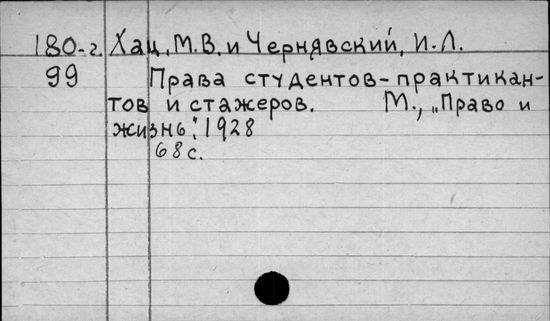 180-г. Хац, М.В. и Чернявский, И.Л.
99 Права студентов-практикан-
тов и стажеров. М., „Право и
жизнь", 1928
68 с.